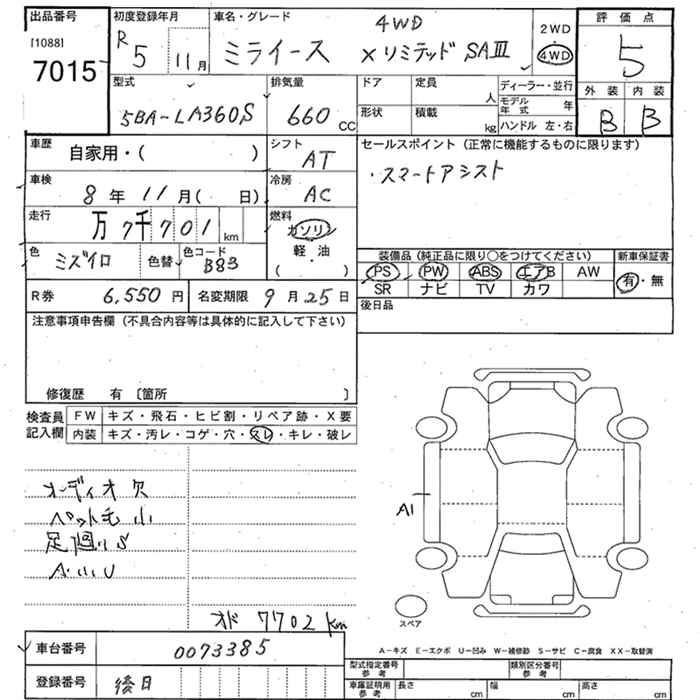 出品番号 初度登録年月 車名・グレード 4WD 2WD 評価点
[1088] R 5 11月 ミライース X リミテッド SAⅢ 4WD 5
7015
型式 排気量 ドア 定員 人 ディーラー・並行 外装 内装
5BA-LA360S 660 CC 形状 積載 kg モデル年式 年 B B
ハンドル 左・右
車歴 自家用・( ) シフト AT セールスポイント (正常に機能するものに限ります)
車検 8年11月( 日) 冷房 AC ・スマートアシスト
走行 万 7千701 km 燃料 ガソリン
軽・油
( )
色 ミズイロ 色替 色コード B83
装備品 (純正品に限り○をつけてください) 新車保証書
PS PW ABS エアB AW 有・無
SR ナビ TV カワ
R券 6,550円 名変期限 9月25日 後日品
注意事項申告欄 (不具合内容等は具体的に記入して下さい)
修復歴 有 〔箇所 〕
検査員記入欄 FW キズ・飛石・ヒビ割・リペア跡・X要
内装 キズ・汚レ・コゲ・穴・スレ・キレ・破レ
オーディオ欠
ペット毛 小
足廻りS
A小小U
A1
オド 7702 km
スペア
A-キズ E-エクボ U-凹み W-補修跡 S-サビ C-腐食 XX-取替済
車台番号 0073385
型式指定番号 参考 類別区分番号 参考
登録番号 後日
車庫証明用 参考 長さ cm 幅 cm 高さ cm